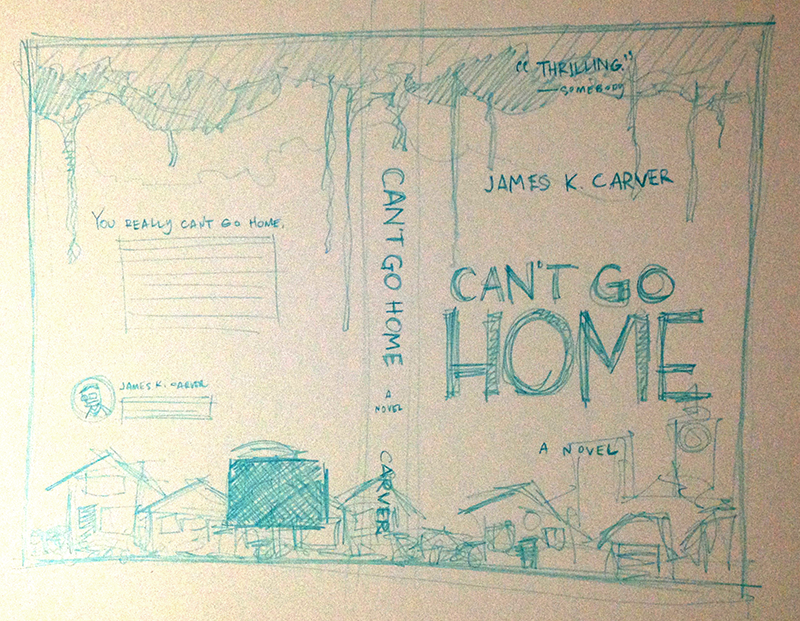 YOU REALLY CAN'T GO HOME.
JAMES K. CARVER
CAN'T GO HOME
A
NOVEL
CARVER
“THRILLING.”
—SOMEBODY
JAMES K. CARVER
CAN'T GO
HOME
A NOVEL